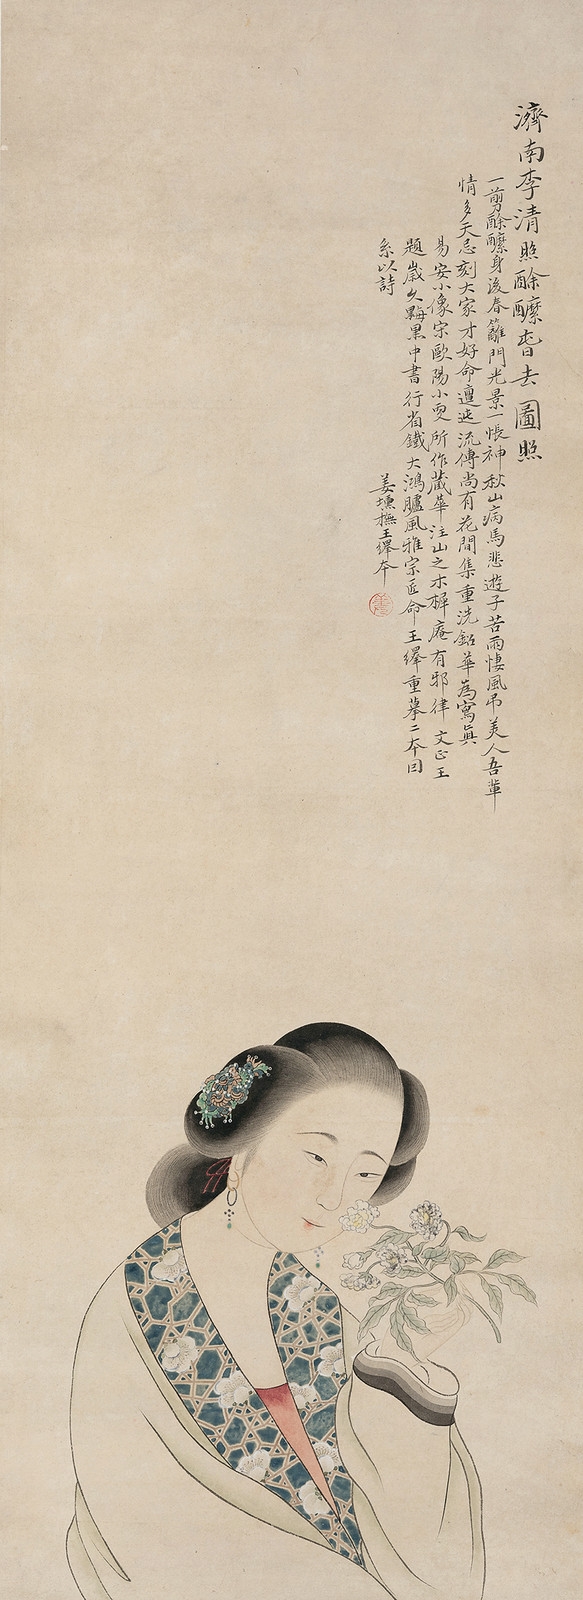 濟南李清照酴醾春去圖照
一剪酴醾身後春籬門光景一悵神秋山病馬悲遊子苦雨悽風吊美人吾輩
情多天忌刻大家才好命邅迍流傳尚有花間集重洗鉛華為寫真
易安小像宋歐陽小叟所作藏華注山之木樨庵有邪律文正王
題歲久黯黑中書行省鐵大鴻臚風雅宗匠命王繹重摹二本因
系以詩
姜壎撫王繹本